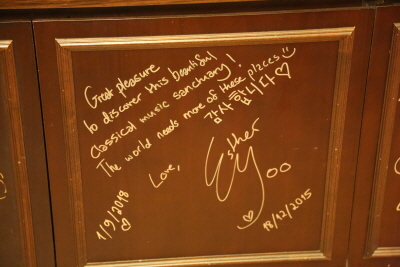 Great pleasure
to discover this beautiful
classical music sanctuary!
The world needs more of these places.
감사합니다
Love,
Esther
Yoo
1/9/2018
18/12/2015